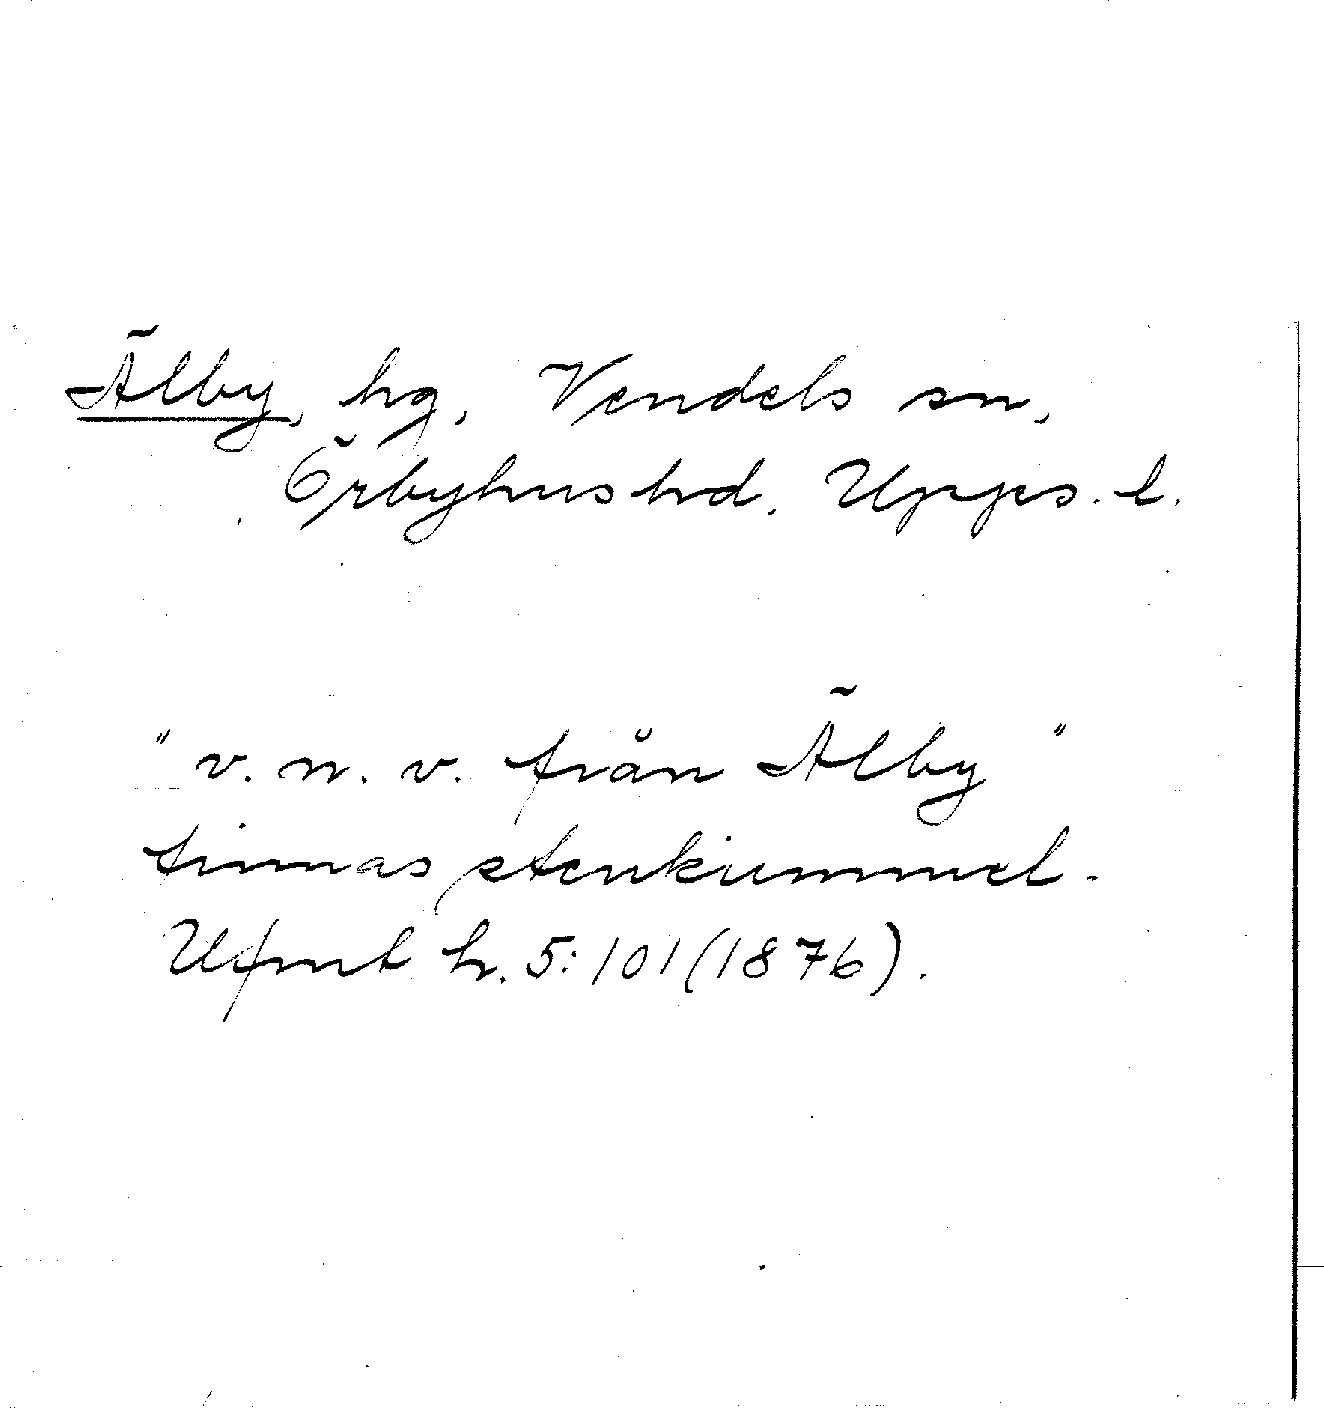 Älby, hg, Vendels sn,
Örbyhus hd. Upps. l.
"v. n. v. från Älby"
finnas stenkummel.
Ufmt h. 5:101 (1876).